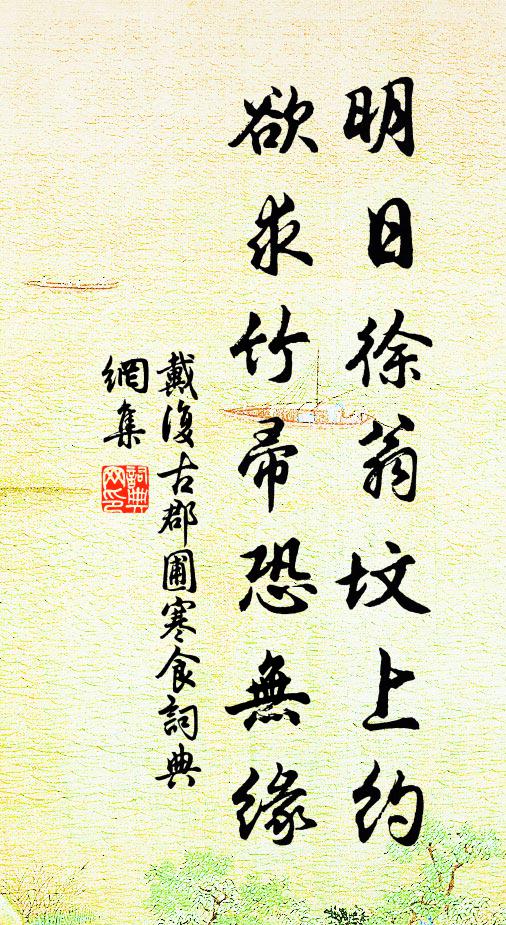 明日徐翁坟上約
欲求竹帚恐無緣
戴復古郡圃寒食詞典
網集
詞典網印